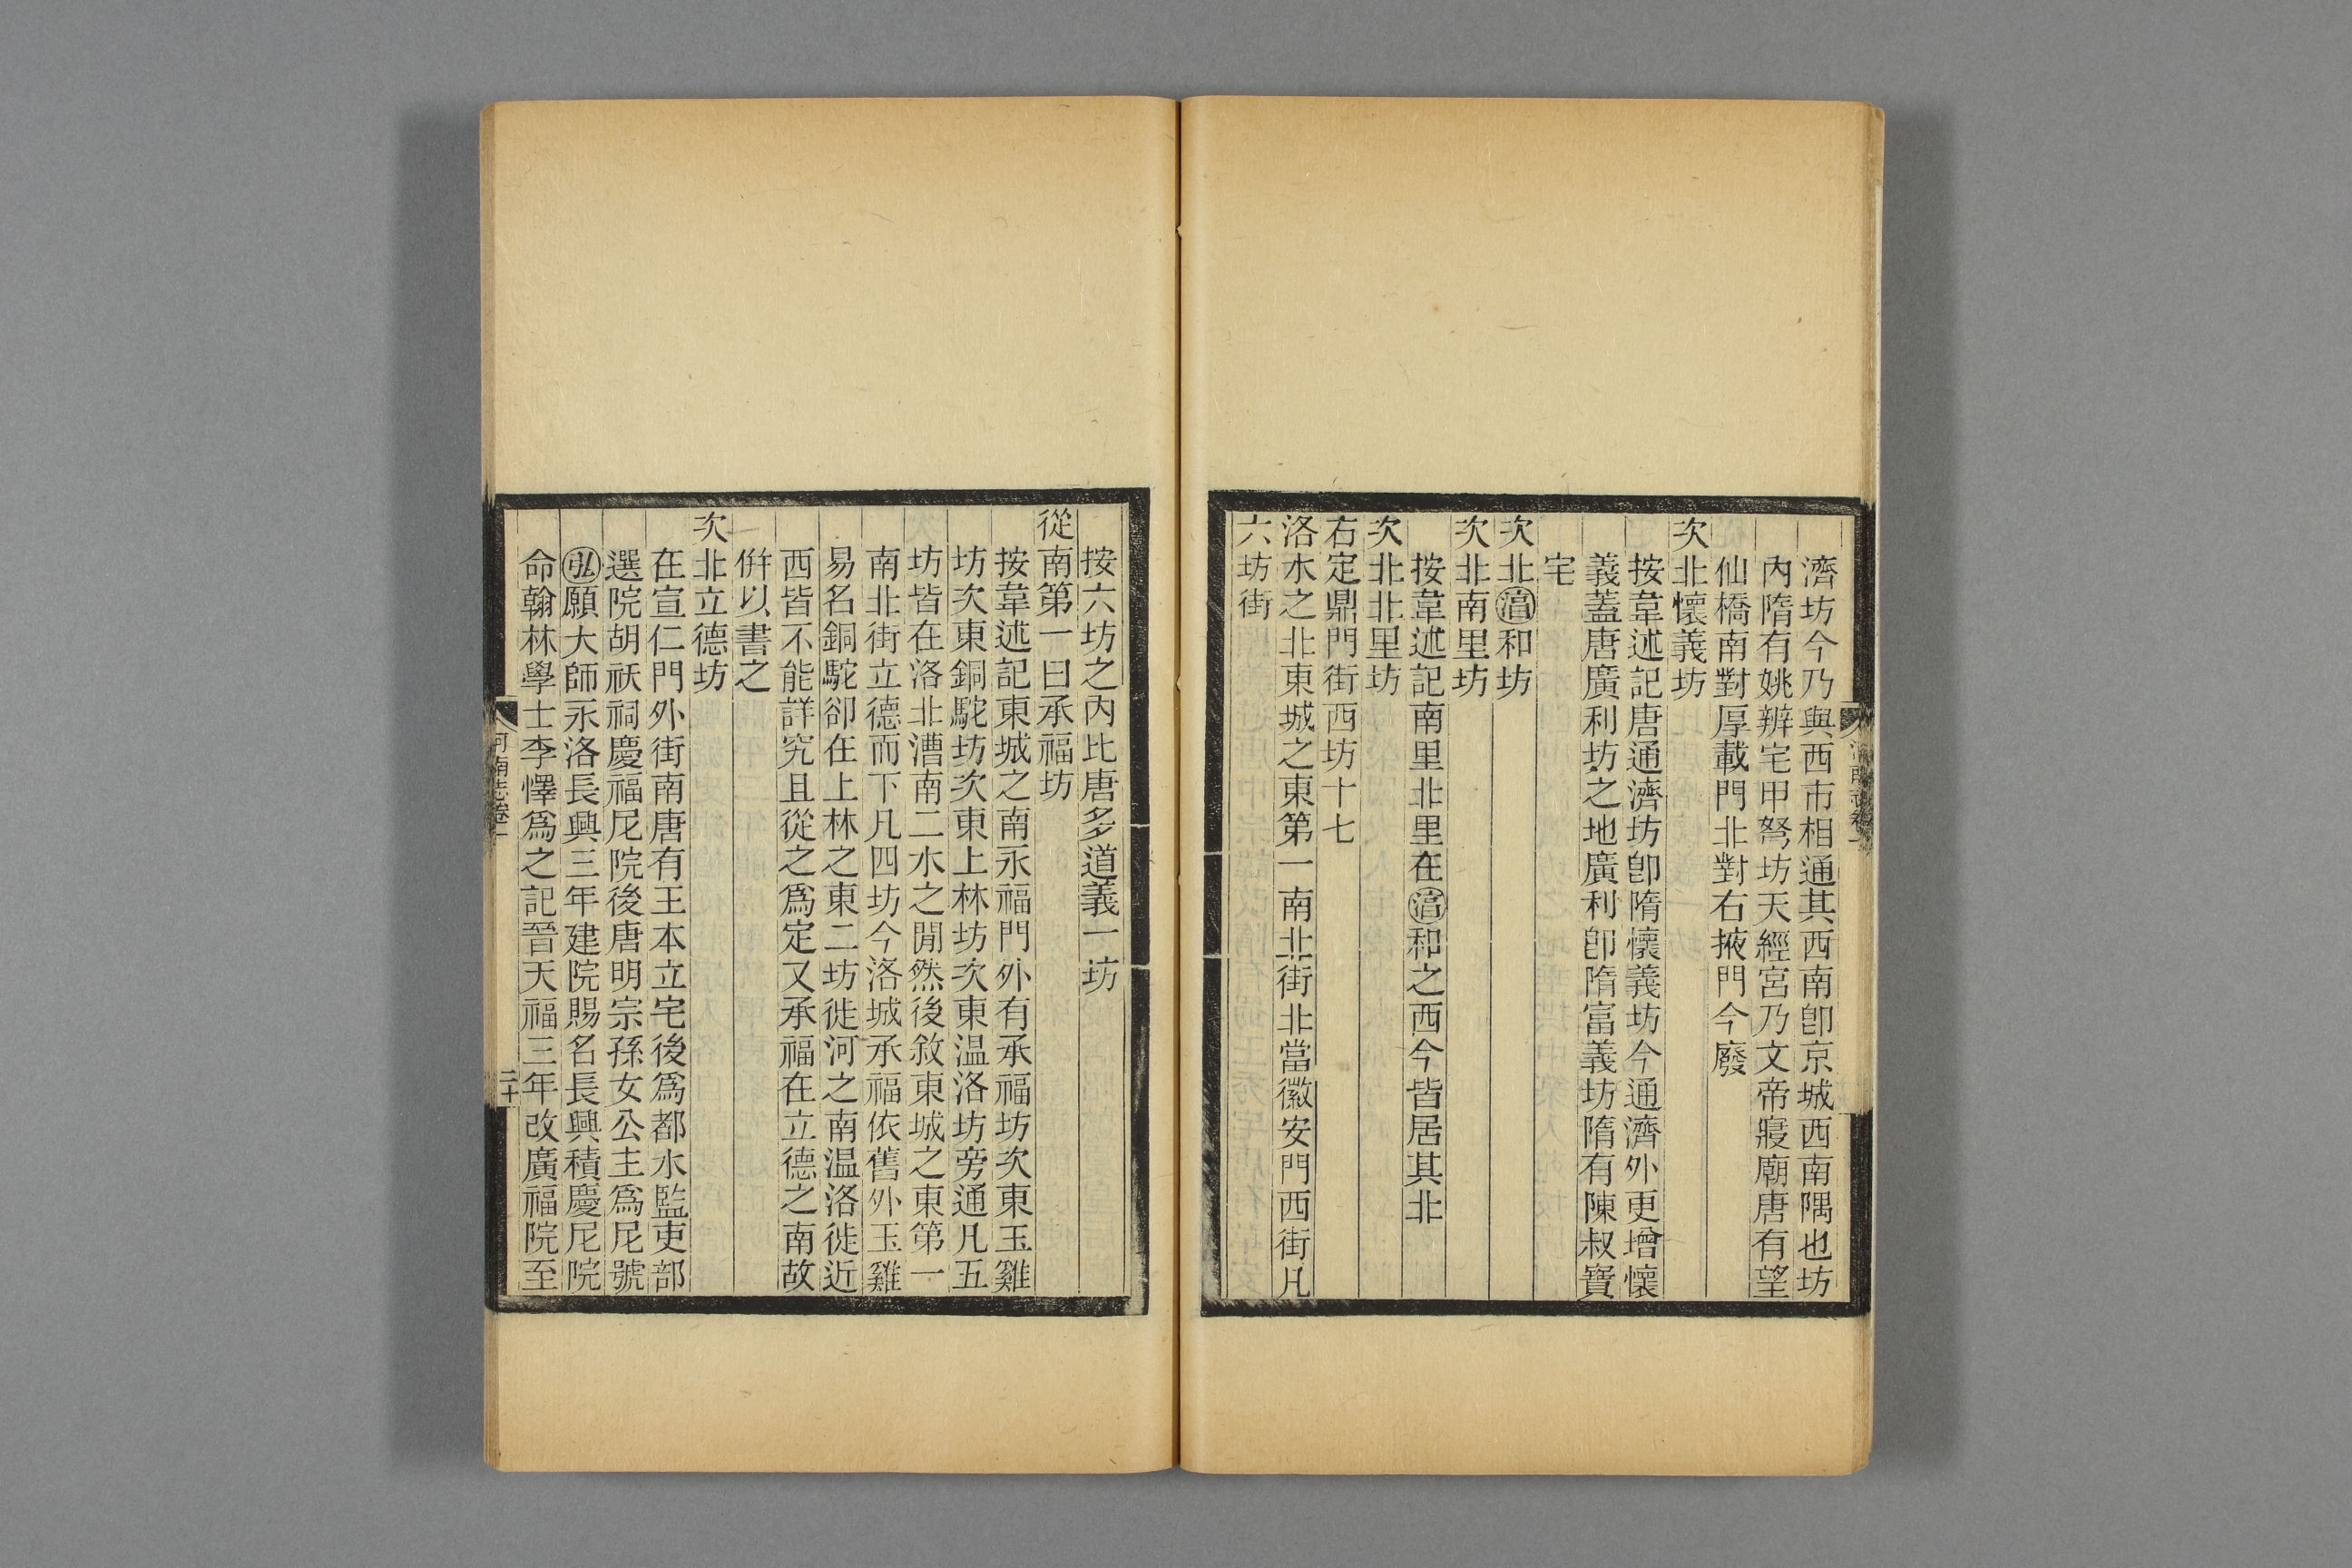 濟坊今乃與西市相通其西南卽京城西南隅也坊
內隋有姚辨宅甲弩坊天經宮乃文帝寢廟唐有望
仙橋南對厚載門北對右掖門今廢
次北懷義坊
按韋述記唐通濟坊卽隋懷義坊今通濟外更增懷
義蓋唐廣利坊之地廣利卽隋富義坊隋有陳叔寶
宅
次北淯和坊
次北南里坊
按韋述記南里北里在淯和之西今皆居其北
次北北里坊
右定鼎門街西坊十七
洛水之北東城之東第一南北街北當徽安門西街凡
六坊街
按六坊之內比唐多道義一坊
從南第一曰承福坊
按韋述記東城之南承福門外有承福坊次東玉雞
坊次東銅駝坊次東上林坊次東温洛坊旁通凡五
坊皆在洛北漕南二水之閒然後敘東城之東第一
南北街立德而下凡四坊今洛城承福依舊外玉雞
易名銅駝卻在上林之東二坊徙河之南温洛徙近
西皆不能詳究且從之爲定又承福在立德之南故
倂以書之
次北立德坊
在宣仁門外街南唐有王本立宅後爲都水監吏部
選院胡祆祠慶福尼院後唐明宗孫女公主爲尼號
弘願大師永洛長興三年建院賜名長興積慶尼院
命翰林學士李懌爲之記晉天福三年改廣福院至
河南志卷一
二十